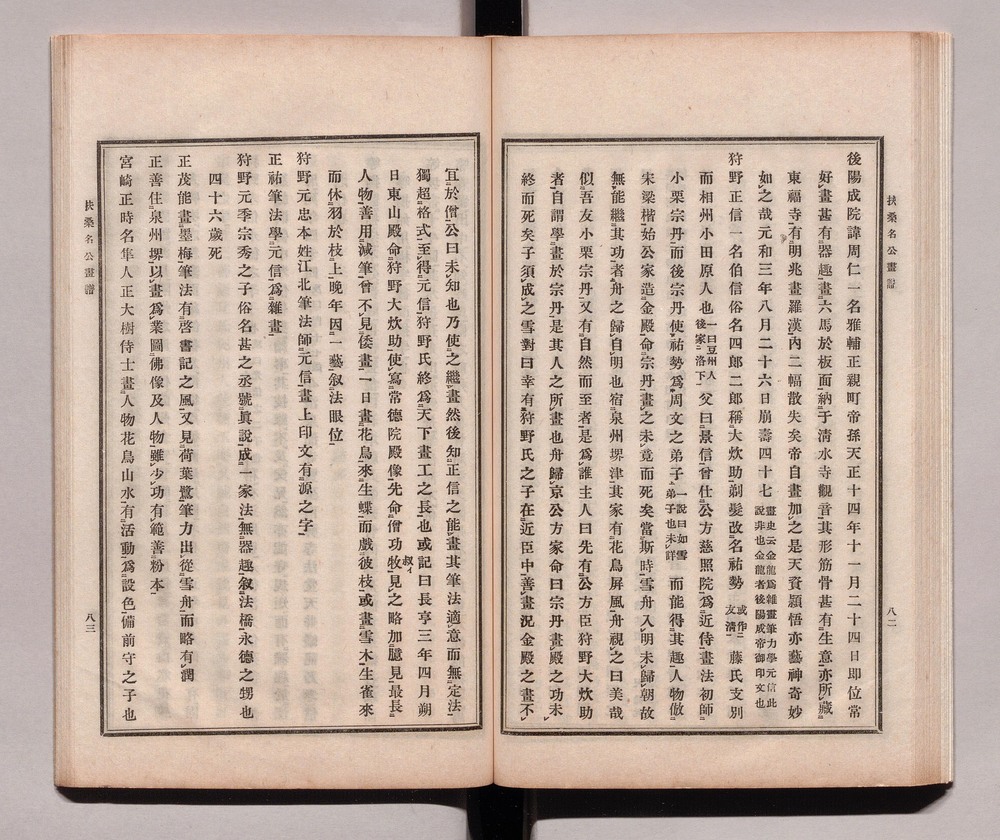 扶桑名公畫譜
八二
後陽成院諱周仁一名雅輔正親町帝孫天正十四年十一月二十四日即位常
好畫甚有器趣畫六馬於板面納于淸水寺觀音其形筋骨甚有生意亦所藏
東福寺有明兆畫羅漢內二幅散失矣帝自畫加之是天資穎悟亦藝神奇妙
如之哉元和三年八月二十六日崩壽四十七畫史云金龍爲雜畫筆力學元信此說非也金龍者後陽成帝御印文也
狩野正信一名伯信俗名四郞二郞稱大炊助剃髮改名祐勢或作友淸藤氏支別
而相州小田原人也一曰豆州人後家洛下父曰景信曾仕公方慈照院爲近侍畫法初師
小栗宗丹而後宗丹使祐勢爲周文之弟子一說曰如雪弟子也未詳而能得其趣人物倣
宋梁楷始公家造金殿命宗丹畫之未竟而死矣當斯時雪舟入明未歸朝故
無能繼其功者舟之歸自明也宿泉州堺津其家有花鳥屏風舟視之曰美哉
似吾友小栗宗丹又有自然而至者是爲誰主人曰先有公方臣狩野大炊助
者自謂學畫於宗丹是其人之所畫也舟歸京公方家命曰宗丹畫殿之功未
終而死矣子須成之雪對曰幸有狩野氏之子在近臣中善畫況金殿之畫不
宜於僧公曰未知也乃使之繼畫然後知正信之能畫其筆法適意而無定法
獨超格式至得元信狩野氏終爲天下畫工之長也或記曰長亨三年四月朔
日東山殿命狩野大炊助使寫常德院殿像先命僧功牧叔イ見之略加臆見最長
人物善用減筆曾不見倭畫一日畫花鳥來生蝶而戲彼枝或畫雪木生雀來
而休羽於枝上晚年因一藝叙法眼位
狩野元忠本姓江北筆法師元信畫上印文有源之字
正祐筆法學元信爲雜畫
狩野元季宗秀之子俗名甚之丞號眞說成一家法無器趣叙法橋永德之甥也
四十六歲死
正茂能畫墨梅筆法有啓書記之風又見荷葉鷺筆力出從雪舟而略有潤
正善住泉州堺以畫爲業圖佛像及人物雖少功有範善粉本
宮崎正時名隼人正大樹侍士畫人物花鳥山水有活動爲設色備前守之子也
扶桑名公畫譜
八三